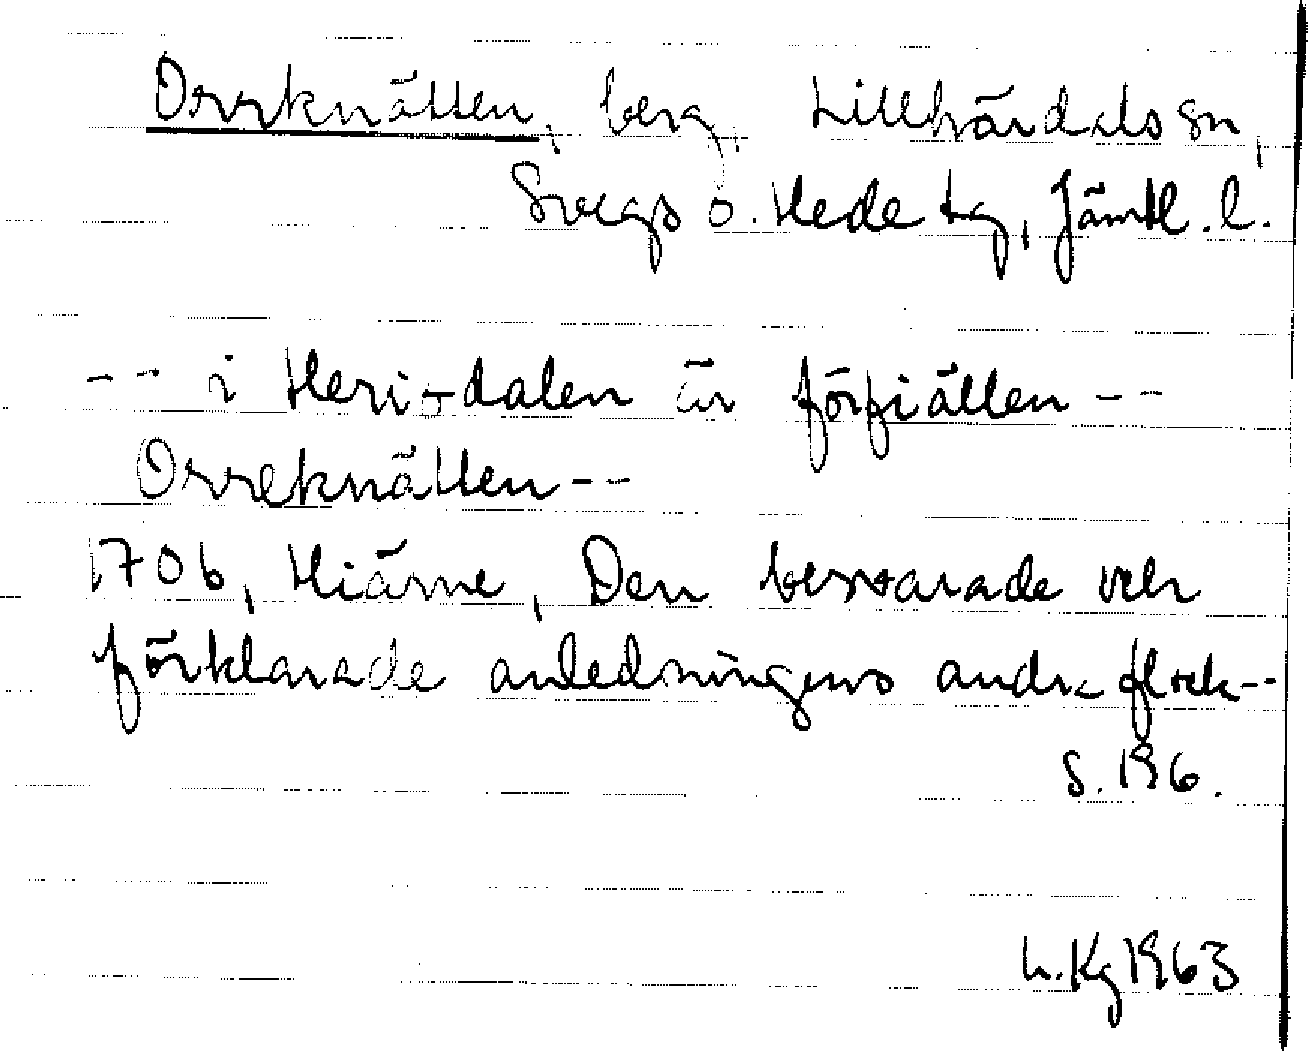 Orrknätten, berg, Lillhärdals sn,
Svegs o. Hede tg, Jämtl. l.
-- i Heriodalen är förfiällen --
Orreknätten --
1706, Hiärne, Den besvarade och
förklarade anledningens andra flock --
s. 196.
L. Kg 1963